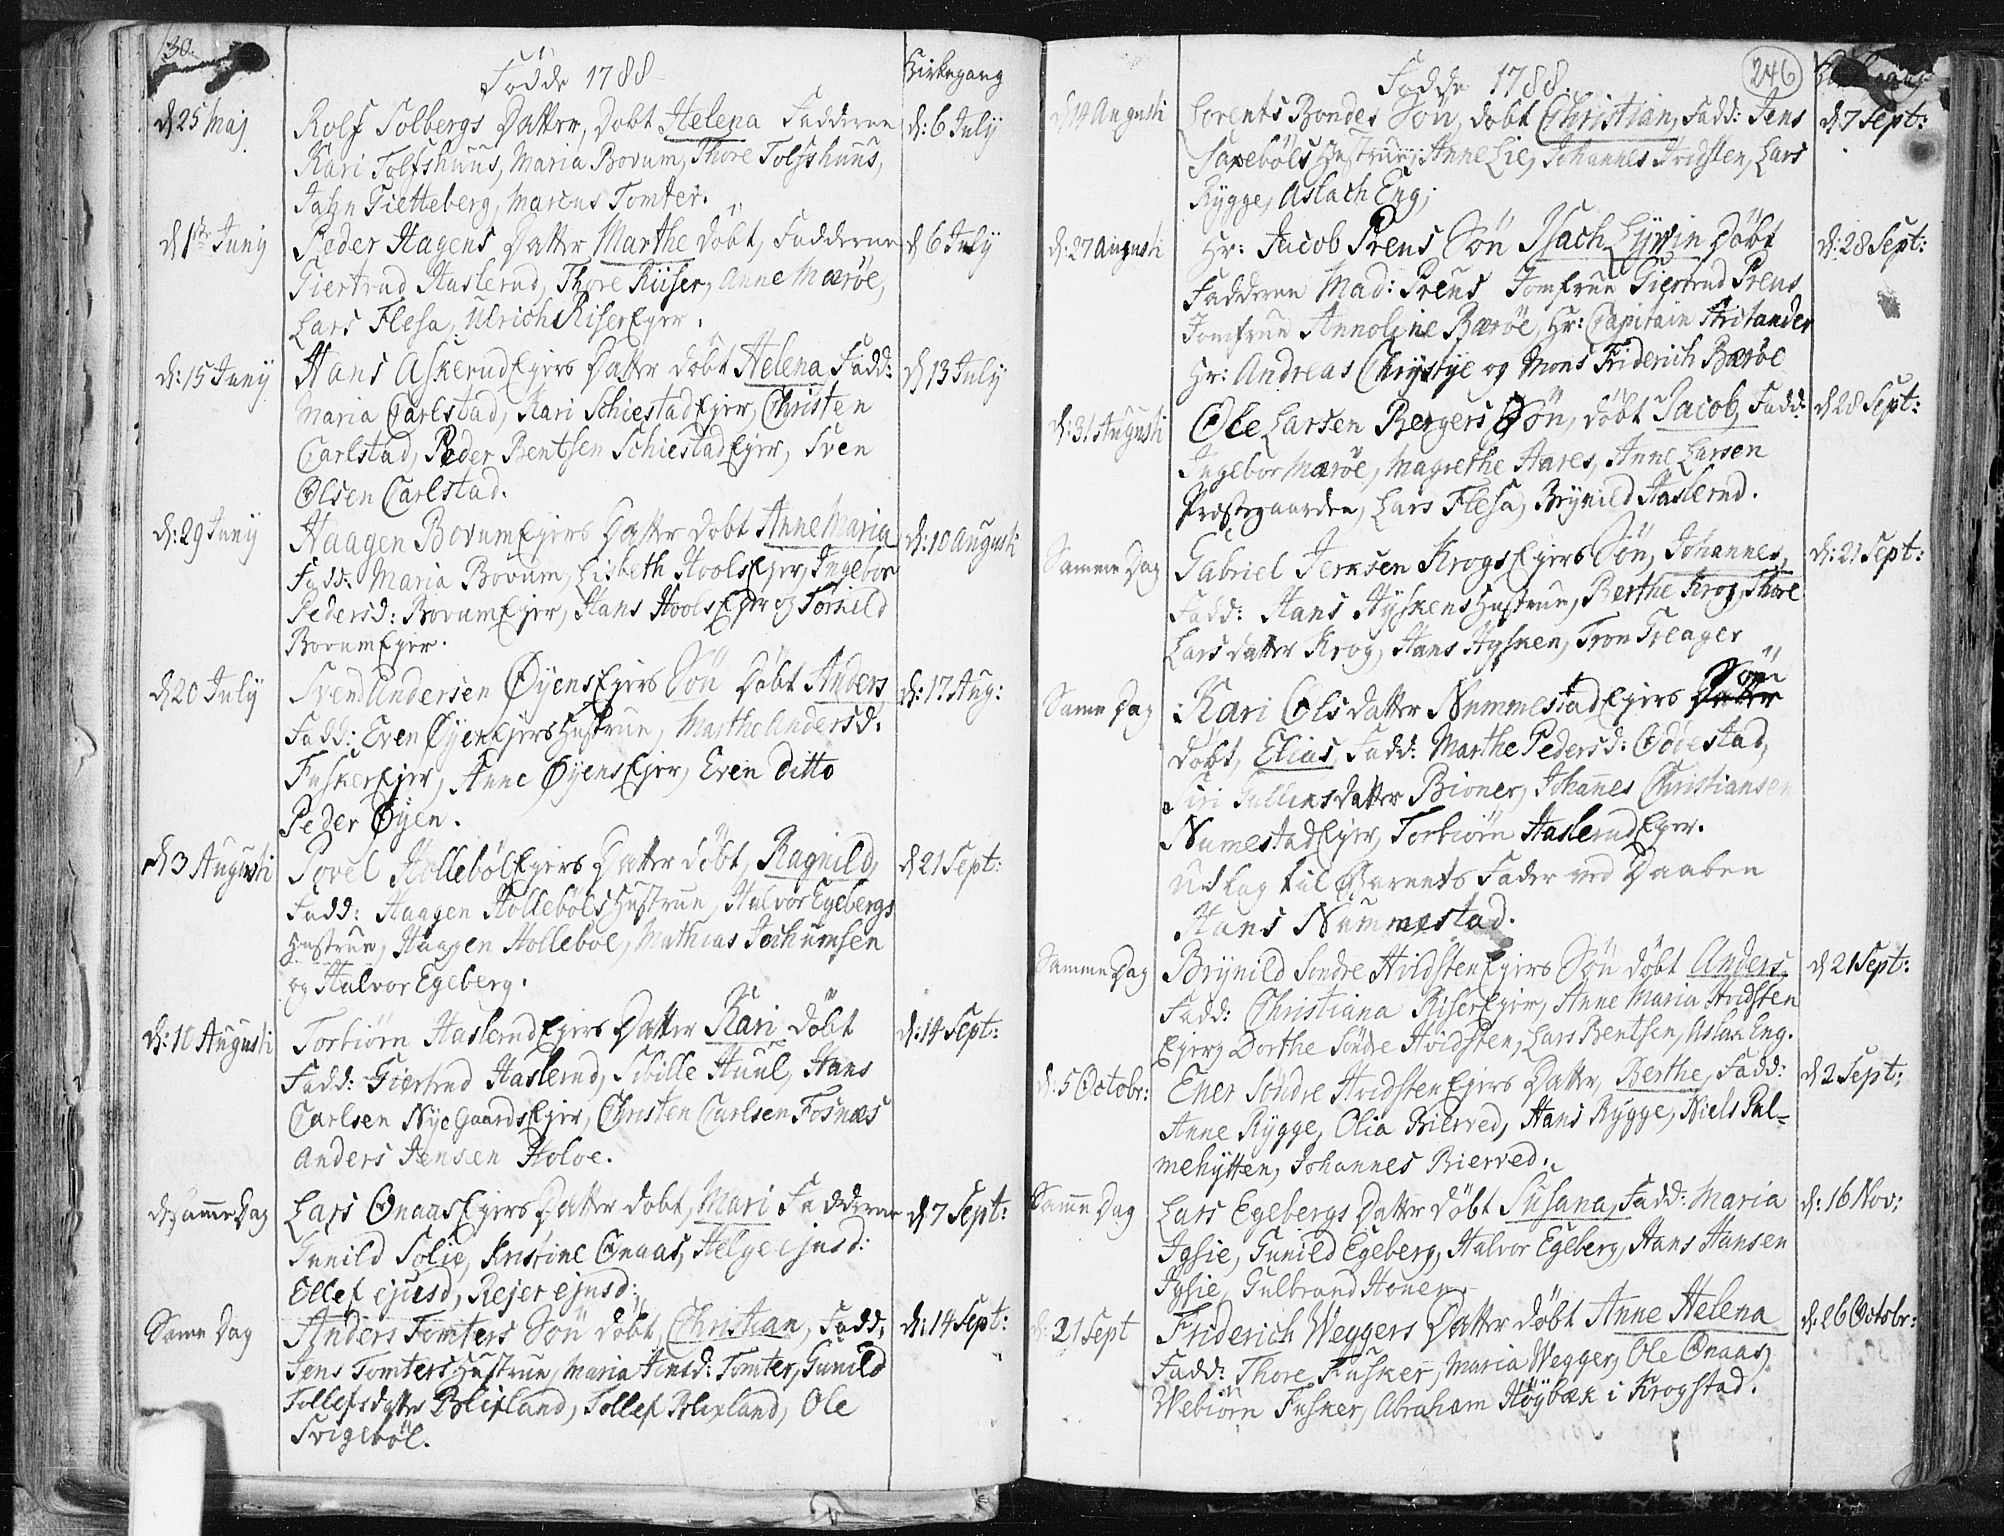 30.
Födde 1788
Kirkegang
d: 25 Maj
Rolf Solbergs Datter, Döbt Helena Fadderne
d: 6 July
Kari Tolfshuus, Maria Bovum, Thore Tolfshuus,
Jahn Tietteberg, Marcus Tomter.
d 1ste Juny
Peder Hagens Datter Marthe döbt, Fadderne
d 6 July
Giertrud Haslerud, Thore Riiser, Anne Mæröe,
Lars Flesa, Ulrich RiserEger.
d: 15 Juny
Hans AskerudEjers Datter döbt Helena Fadd:
d 13 July
Maria Carlstad, Kari SchiestadEjer, Christen
Carlstad, Peder Bentsen SchiestadEjer, Sven
Olsen Carlstad.
d: 29 Juny
Haagen BovumEjers Datter döbt Anne Maria
d: 10 Augusti
Fadd: Maria Bovum, Lisbeth HoolsEjer, Ingebor
Pedersd: BovumEjer, Hans HoolsEjer og Tornild
BovumEjer.
d 20 July
Svend Andersen ØyensEjers Sön Döbt Anders
d: 17 Aug:
Fadd: Even ØyenEjers Hustrue, Marthe Andersd:
FuskerEjer, Anne ØyensEjer, Even Ditto
Peder Øyen.
d 3 Augusti
Povel HollebölEjers Datter döbt, Ragnild,
d 21 Sept:
Fadd: Haagen Hollebols Hustrue, Halvor Egebergs
Hustrue, Haagen Holleboe, Mathias Jochumsen
og Halvor Egeberg.
d: 10 Augusti
Torbiörn HaslerudEjers Datter Kari döbt
d: 14 Sept:
Fadd: Giertrud Haslerud, Sibille Huul, Hans
Carlsen NyeGaardsEjer, Christen Carlsen Fosnæs
Anders Jensen Holoe.
d Samme Dag
Lars OnaasEjers Datter döbt, Mari Fadderne
d 7 Sept:
Gunild Solie, Kristine Onaas, Helge ejusd:
Ellef ejusd, Rejer ejusd:
Same Dag
Anders Tomters Sön döbt, Christian, Fadd,
d: 14 Sept:
Jens Tomters Hustrue, Maria Tomter, Gunild
Tollefsdatter Blixland, Tollef Blixland, Ole
Svigeböl.
246
Födde 1788.
d 14 Augusti
Lorents Bondes Sön, döbt Christian, Fadd: Jens
d 7 Sept:
Saxeböls Hustrue, Anne Lie, Johannes Hvidsten, Lars
Rygge, Aslach Eng;
d: 27 Augusti
Hr: Jacob Preus Sön Isach Döbt
d: 28 Sept:
Fadderne Mad: Preus Jomfrue Giertrud Preus
Jomfrue Annoline Bæröe, Hr: Capitain
Hr: Andreas Chrystye og Mons Friderich Bæröe
d: 31 Augusti
Ole Larsen Bergers Sön, döbt Jacob, Fadd:
d 28 Sept:
Ingebor Mæröe, Magrethe Aares, Anne Larsen
Præstegaarden, Lars Flesa, Brynild Haslerud.
Samme Dag
Gabriel Jensen KrogsEjers Sön, Johannes,
d: 21 Sept:
Fadd: Hans Hyskens Hustrue, Berthe Krog, Thore
Larsdatter Krog, Hans Hysken, Tron Greager
Sön
Same Dag
Kari Olsdatter NummestadEjers Datter
döbt, Elias, Fadd: Marthe Pedersd: Odöestad,
Siri Gullixsdatter Bioner, Johanes Christiansen
NumestadEjer, Torbiörn HaslerudEger.
Udlag til Barnets Fader ved Daaben
Hans Nummestad.
Samme Dag
Brynild Söndre HvidstenEjers Sön döbt Anders
d 21 Sept:
Fadd: Christiana RiserEjer, Anne Maria Hvidsten
Ejer, Dorthe Söndre Hvidsten, Lars Bentsen, Aslak Eng.
d: 5 Octobr:
Ener Söndre HvidstenEjers Datter, Berthe, Fadd:
d 2 Sept:
Anne Rygge, Olia Bierved, Hans Rygge, Niels Pal-
mehytten, Johannes Bierved.
Samme Dag
Lars Egebergs Datter döbt Susana, Fadd: Maria
d: 16 Nov:
Igsie, Gunild Egeberg, Halvor Egeberg, Hans Hansen
Igsie, Gulbrand Honen.
d: 21 Sept
Friderich Weggers Datter döbt Anne Helena
d: 26 Octobr:
Fadd: Thore Fusker, Maria Wegger, Ole Onaas,
Webiörn Fusker, Abraham Höybæk i Krogstad.